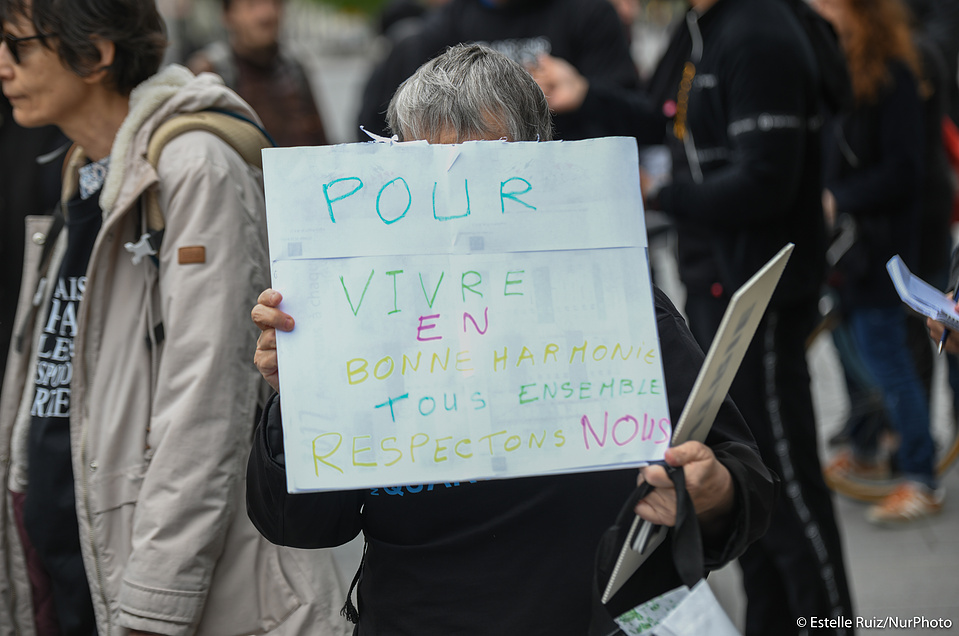 POUR
VIVRE
EN
BONNE HARMONIE
TOUS ENSEMBLE
RESPECTONS NOUS
AIS
LES
© Estelle Ruiz/NurPhoto